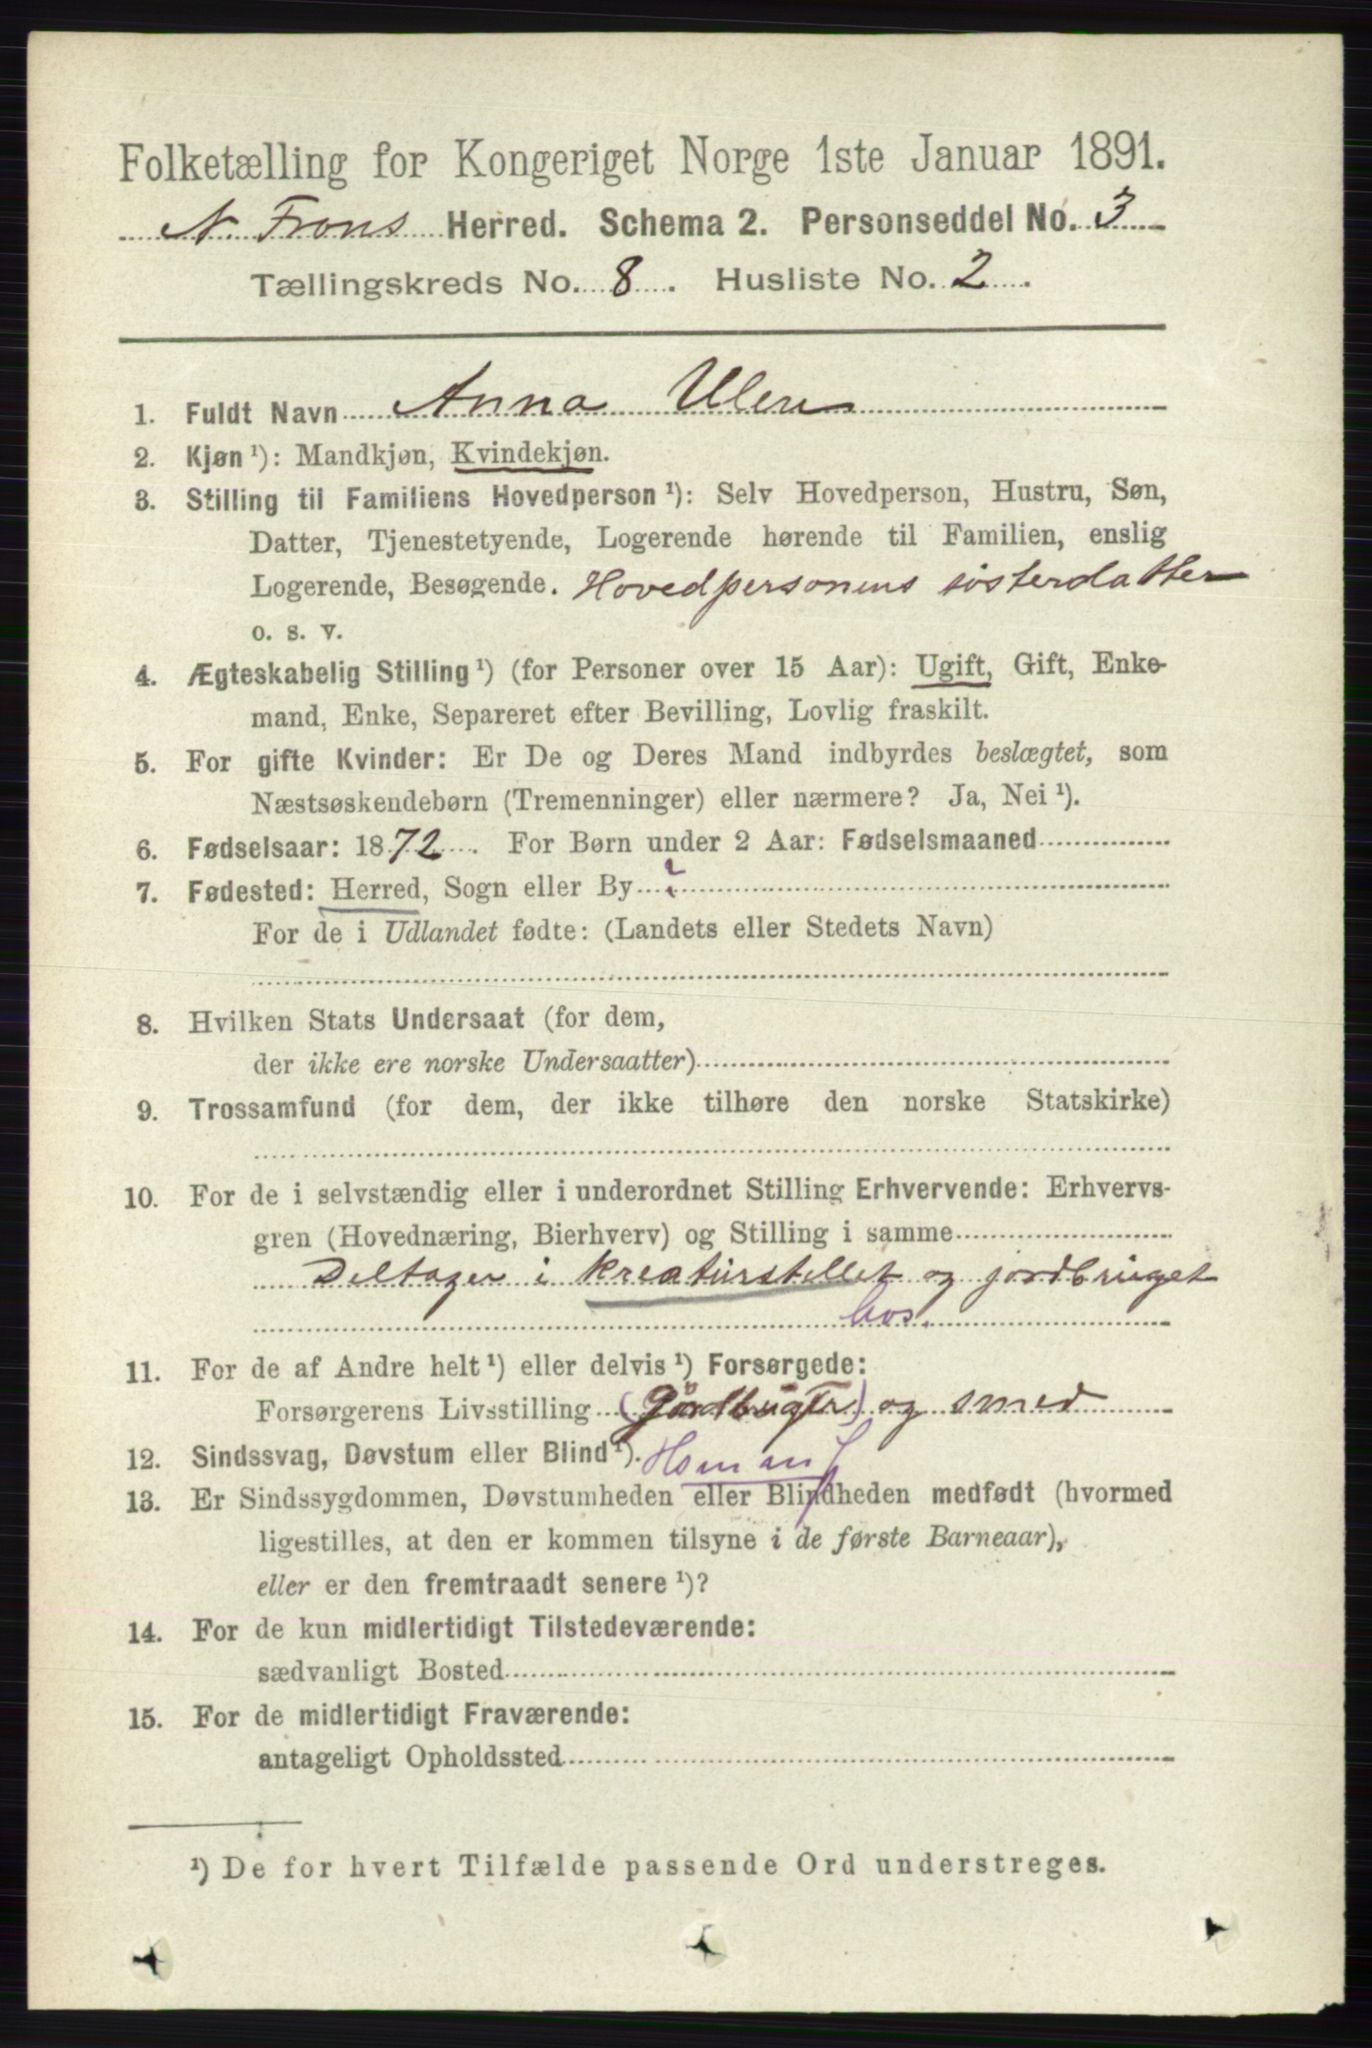 Folketælling for Kongeriget Norge 1ste Januar 1891.
N. Frons Herred. Schema 2. Personseddel No. 3
Tællingskreds No. 8. Husliste No. 2.
1. Fuldt Navn Anna Ulen
2. Kjøn ¹): Mandkjøn, Kvindekjøn.
3. Stilling til Familiens Hovedperson ¹): Selv Hovedperson, Hustru, Søn,
Datter, Tjenestetyende, Logerende hørende til Familien, enslig
Logerende, Besøgende. Hovedpersonens søsterdatter
o. s. v.
4. Ægteskabelig Stilling ¹) (for Personer over 15 Aar): Ugift, Gift, Enke-
mand, Enke, Separeret efter Bevilling, Lovlig fraskilt.
5. For gifte Kvinder: Er De og Deres Mand indbyrdes beslægtet, som
Næstsøskendebørn (Tremenninger) eller nærmere? Ja, Nei ¹).
6. Fødselsaar: 1872. For Børn under 2 Aar: Fødselsmaaned
7. Fødested: Herred, Sogn eller By ?
For de i Udlandet fødte: (Landets eller Stedets Navn)
8. Hvilken Stats Undersaat (for dem,
der ikke ere norske Undersaatter)
9. Trossamfund (for dem, der ikke tilhøre den norske Statskirke)
10. For de i selvstændig eller i underordnet Stilling Erhvervende: Erhvervs-
gren (Hovednæring, Bierhverv) og Stilling i samme
Deltager i kreaturstellet og jordbruget
hos.
11. For de af Andre helt ¹) eller delvis ¹) Forsørgede:
Forsørgerens Livsstilling (Gårdbruger) og smed
12. Sindssvag, Døvstum eller Blind ¹).
13. Er Sindssygdommen, Døvstumheden eller Blindheden medfødt (hvormed
ligestilles, at den er kommen tilsyne i de første Barneaar),
eller er den fremtraadt senere ¹)?
14. For de kun midlertidigt Tilstedeværende:
sædvanligt Bosted
15. For de midlertidigt Fraværende:
antageligt Opholdssted
¹) De for hvert Tilfælde passende Ord understreges.